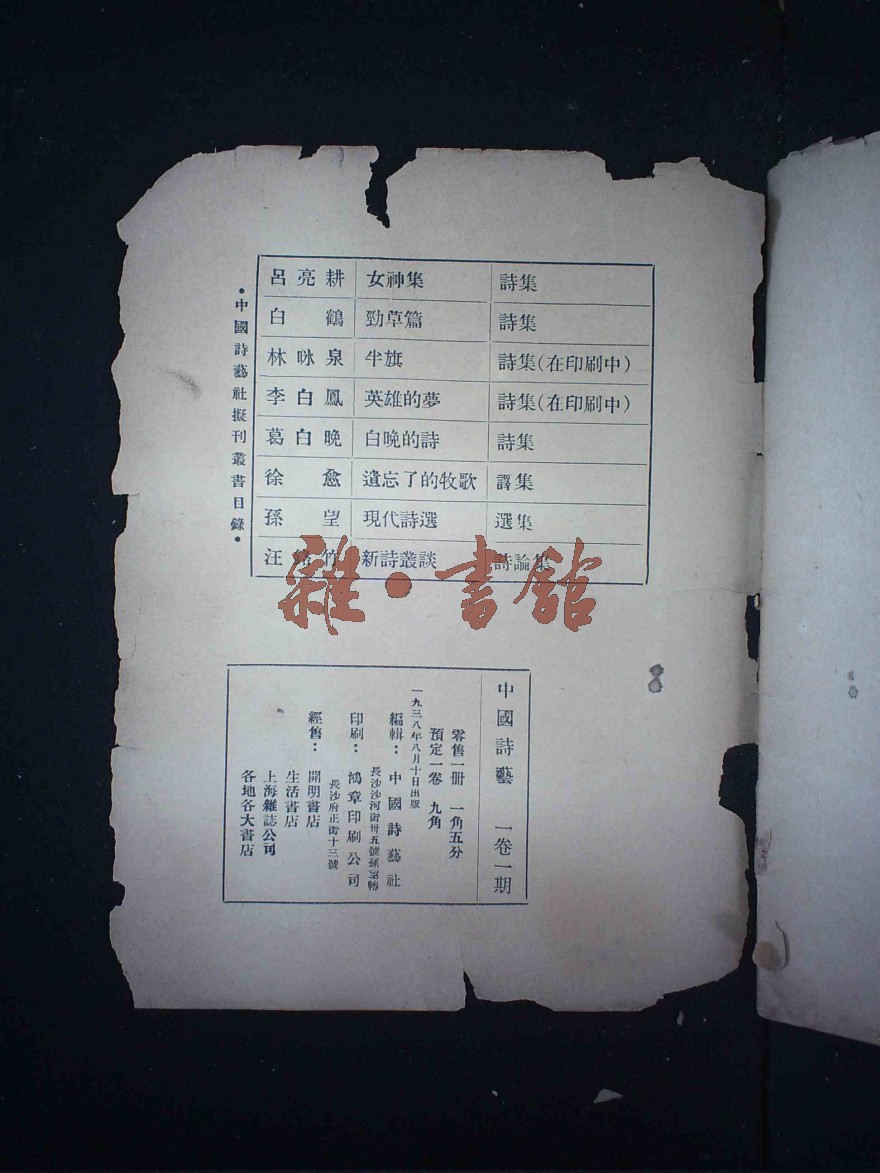 •中國詩藝社擬刊叢書目錄•
呂亮耕 女神集 詩集
白鶴 勁草篇 詩集
林咏泉 半旗 詩集(在印刷中)
李白鳳 英雄的夢 詩集(在印刷中)
葛白晚 白晚的詩 詩集
徐愈 遺忘了的牧歌 譯集
孫望 現代詩選 選集
汪銘竹 新詩叢談 詩論集
雜•書館
中國詩藝 一卷一期
零售一冊 一角五分
預定一卷 九角
一九三八年八月十日出版
編輯：中國詩藝社
長沙沙河街卅五號孫望轉
印刷：鴻章印刷公司
長沙府正街十三號
經售：開明書店
生活書店
上海雜誌公司
各地各大書店